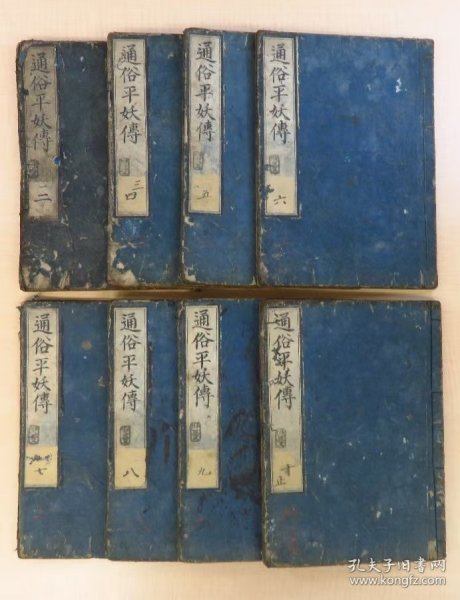 通俗平妖傳
二
通俗平妖傳
三四
通俗平妖傳
五
通俗平妖傳
六
通俗平妖傳
七
通俗平妖傳
八
通俗平妖傳
九
通俗平妖傳
十止
孔夫子旧书网
www.kongfz.com